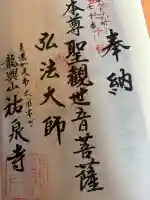 奉納
本尊聖観世音菩薩
弘法大師
龍興山祐泉寺